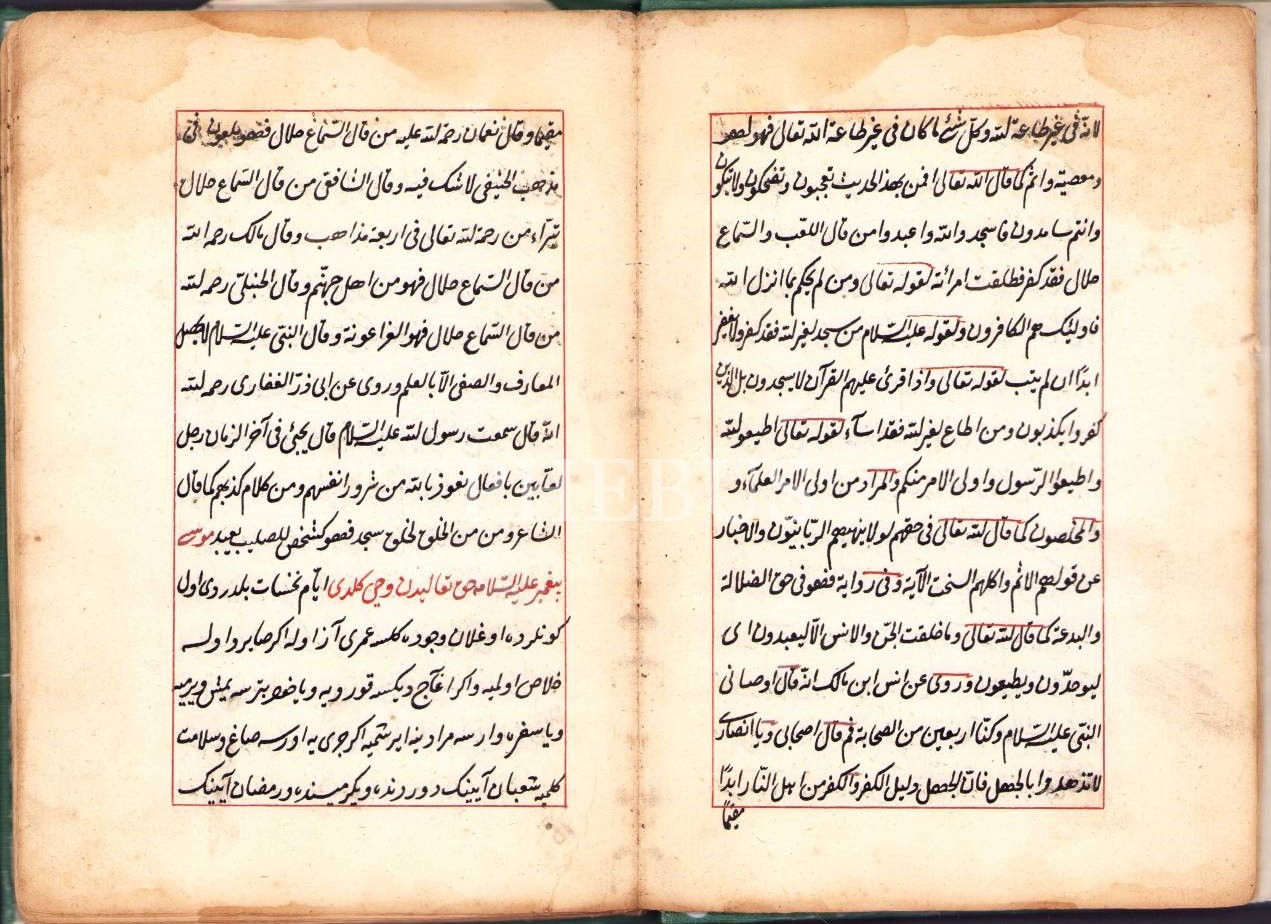 لانّه فى غير طاعة لله وكلّ شئ ما كان فى غير طاعة الله تعالى فهو لهو
ومعصية واثم كما قال الله تعالى افمن بهذا الحديث تعجبون وتضحكون ولا تبكون
وانتم سامدون فاسجدوا لله واعبدوا من قال اللّعب والسّماع
حلال فقد كفر فطلقت امرأته لقوله تعالى ومن لم يحكم بما انزل الله
فاولئك هم الكافرون ولقوله عليه السّلام من سجد لغير لله فقد كفر ولا يغفر
ابدًا ان لم يتب لقوله تعالى واذا قرئ عليهم القرآن لا يسجدون بل الذين
كفروا يكذبون ومن اطاع لغير لله فقد اسآء لقوله تعالى اطيعوا لله
واطيعوا الرّسول واولى الامر منكم والمراد من اولى الامر العلمآء و
والمخلصون كما قال لله تعالى فى حقهم لولا ينهيهم الربّانيّون والاحبار
عن قولهم الاثم واكلهم السحت الآية وفى رواية فهو فى حق الضلالة
والبدعة كما قال لله تعالى وما خلقت الجنّ والانس الّا ليعبدون اى
ليوحدّون ويطيعون وروى عن انس ابن مالك انّه قال اوصانى
النبّى عليه السّلام وكنّا اربعين من الصحابة فم قال اصحابى ويا انصارى
لا تزهدوا بالجهل فانّ الجهل دليل الكفر والكفر من اهل النّار ابدًا
مقيمًا
مقيما وقال نعمان رحمة لله عليه من قال السّماع حلال فهو ملعون فى
مذهب الحنيفى لا شك فيه وقال الشافعى من قال السّماع حلال
تبرّاء من رحمة لله تعالى فى اربعة مذاهب وقال مالك رحمه الله
من قال السّماع حلال فهو من اهل جهنّم وقال الحنبلى رحمه لله
من قال السّماع حلال فهو الفراعونة وقال النبّى عليه السّلام لا يحصل
المعارف والصفى الّا بالعلم وروى عن ابى ذرّ الغفارى رحمه لله
انّه قال سمعت رسول لله عليه السّلام قال يجيئ فى آخر الزمان رجل
لعّابين بافعال نعوذ بالله من شرور انفسهم ومن كلام كذبهم كما قال
الشاعر ومن من الخلق لخلق سجد فهو كشخص للصليب يعبد موسى
پيغمبر عليه السّلامه حق تعاليدن وحى كلدى ايّام نحسات بلدردى اول
كونلرده اوغلان وجوده كلسه عمرى آز اوله اكر صاير و اولسه
خلاص اولميه واكر اغاج ديكسه قوريه وياخود بترسه يمش ويرميه
وياسفره وارسه مرادينه ايرشميه اكر جرى يه اورسه صاغ وسلامت
كلميه شعبان آيينك دوردنده ويكرميسنده ورمضان آيينك